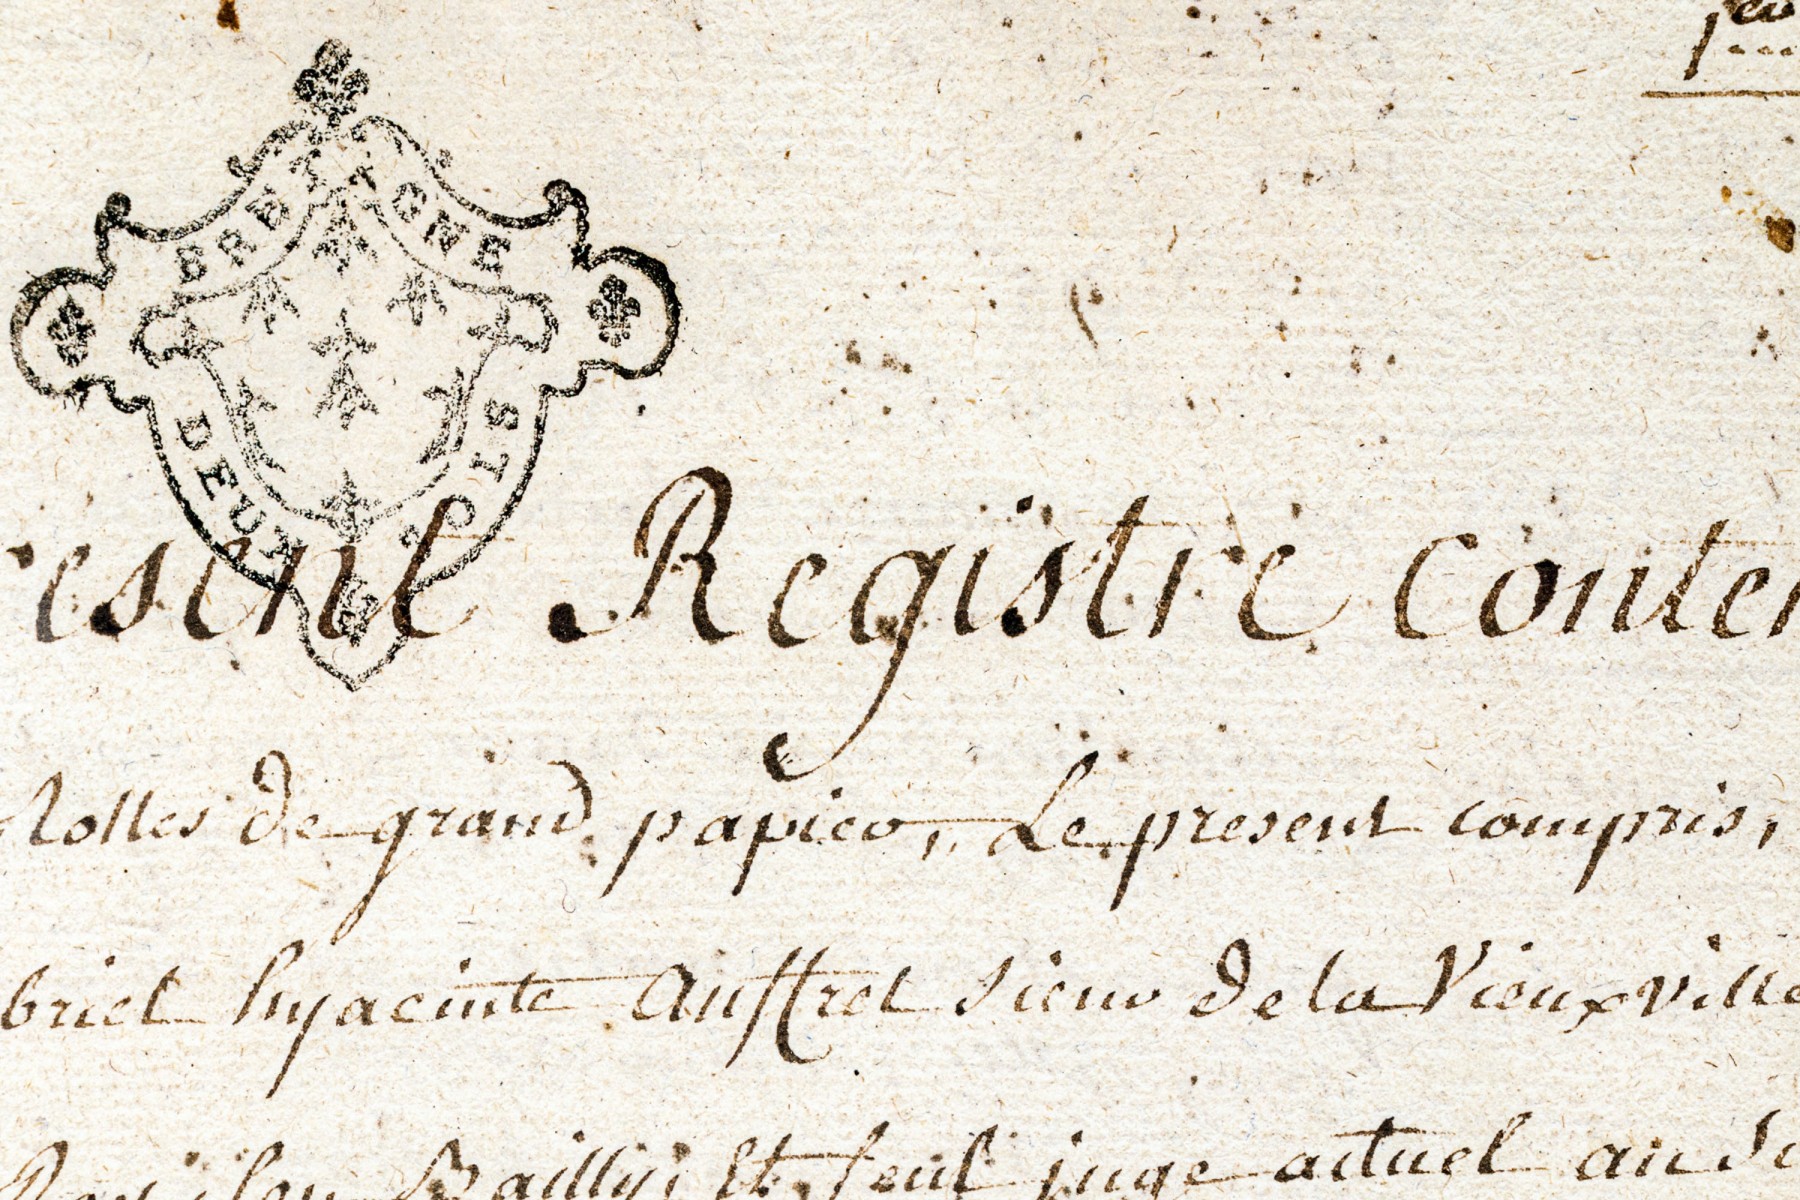 1er
BRETAGNE
DEUX SOLS
resent Registre conten
Rolles de grand papier, Le present compris,
briel hyacinte Auffret sieur de la Vieuxville
Bailly, Et seul juge actuel au